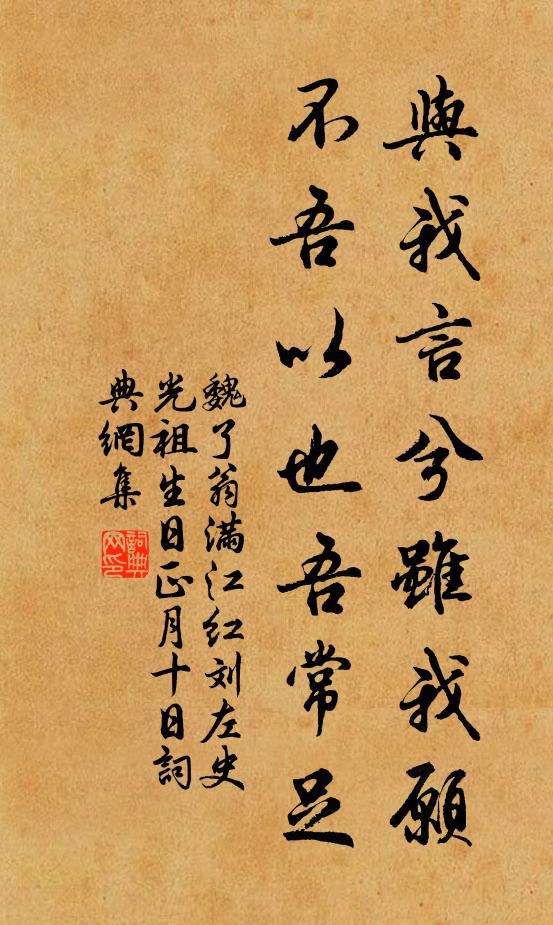 與我言兮雖我願
不吾以也吾常足
魏了翁满江红刘左史
光祖生日正月十日詞
典網集
詞典网印